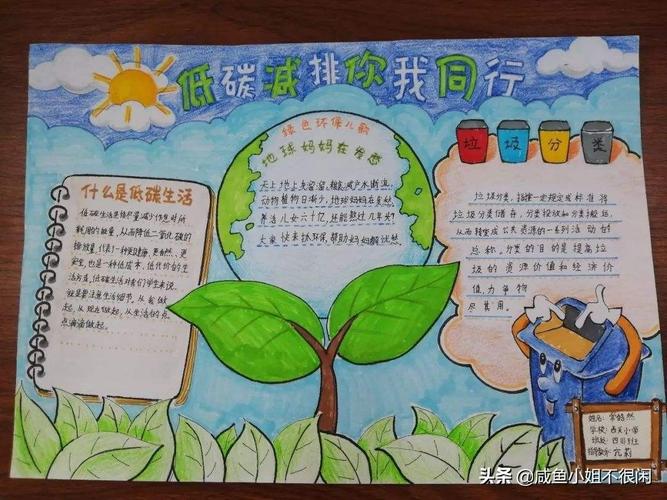 低碳减排你我同行
什么是低碳生活
低碳生活是指尽量减少作息时所
耗用的能量,从而降低二氧化碳的
排放量,代表了一种更健康、更自然、更
安全,也是一种低成本、低代价的生
活方式,低碳生活对我们学生来说,
就是要注意生活细节,从我做
起,从现在做起,从生活的点
点滴滴做起。
绿色环保儿歌
地球妈妈在发愁
天上地上
动物植物日渐少,地球妈妈在
养活儿女六十亿,还能熬过几年头?
大家快来抓环保,帮助妈妈解忧愁
垃 圾 分 类
垃圾分类,指按一定规定或标准将
垃圾分类储存、分类投放和分类搬运,
从而转变成公共资源的一系列活动的
总称。分类的目的是提高垃
圾的资源价值和经济价
值,力争物
尽其用。
姓名:
学校:西关小学
班级:四
指导教师:
头条 @咸鱼小姐不很闲